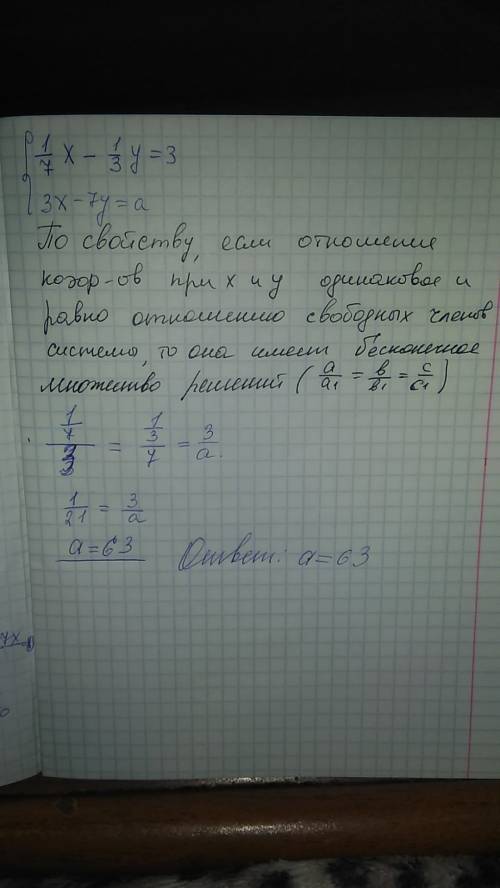 { 1/7 x − 1/3 y = 3
3x − 7y = a
По свойству, если отношение
коэф-ов при x и y одинаковое и
равно отношению свободных членов
системы, то она имеет бесконечное
множество решений ( a/a₁ = в/в₁ = c/c₁ )
(1/7)/3 = (1/3)/7 = 3/a.
1/21 = 3/a
a = 63 Ответ: a = 63
7x